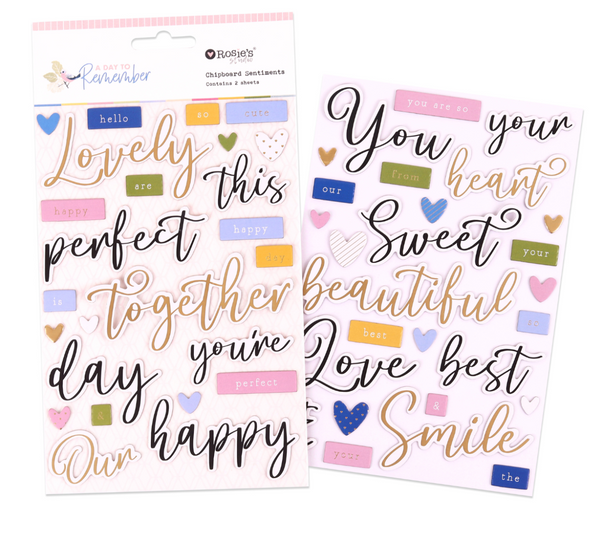 A DAY TO
Remember
ROSIE'S
Studio
Chipboard Sentiments
Contains 2 sheets
hello
so
cute
Lovely
are
this
happy
perfect
happy
day
is
together
day
you're
perfect
&
Our
happy
you are so
You
your
from
heart
our
Sweet
your
beautiful
so
best
Love
best
&
Smile
your
the